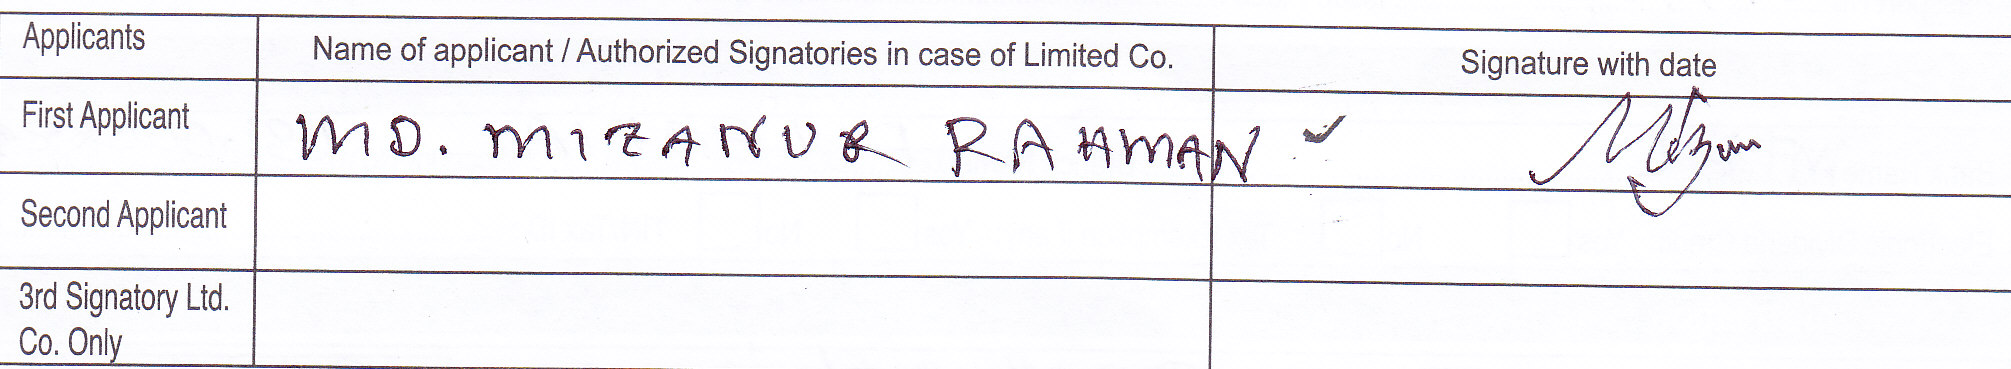 Applicants
Name of applicant / Authorized Signatories in case of Limited Co.
Signature with date
First Applicant
MD. MIZANUR RAHMAN
Second Applicant
3rd Signatory Ltd.
Co. Only